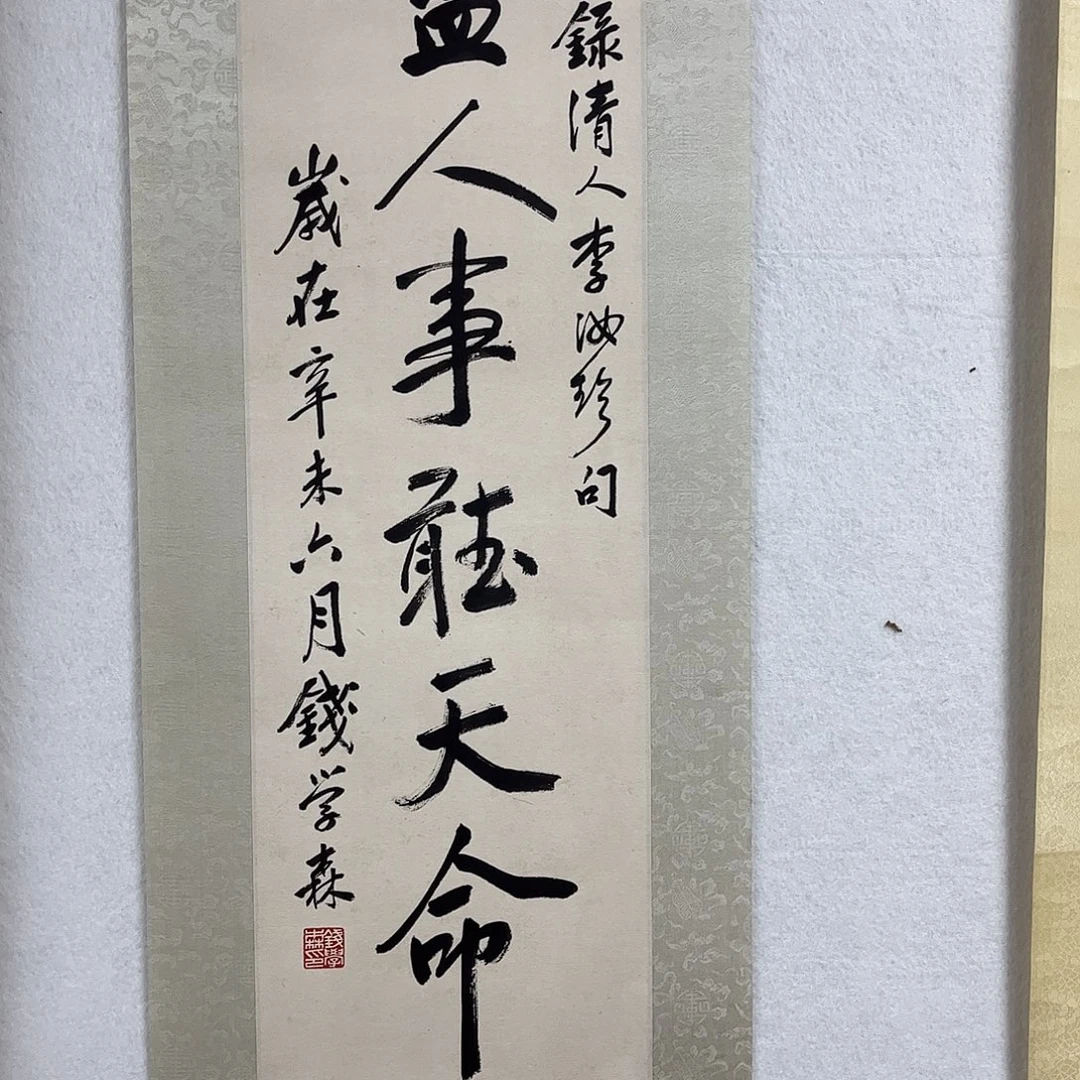 錄清人李汝珍句
人事聽天命
歲在辛未六月錢学森
錢學森印